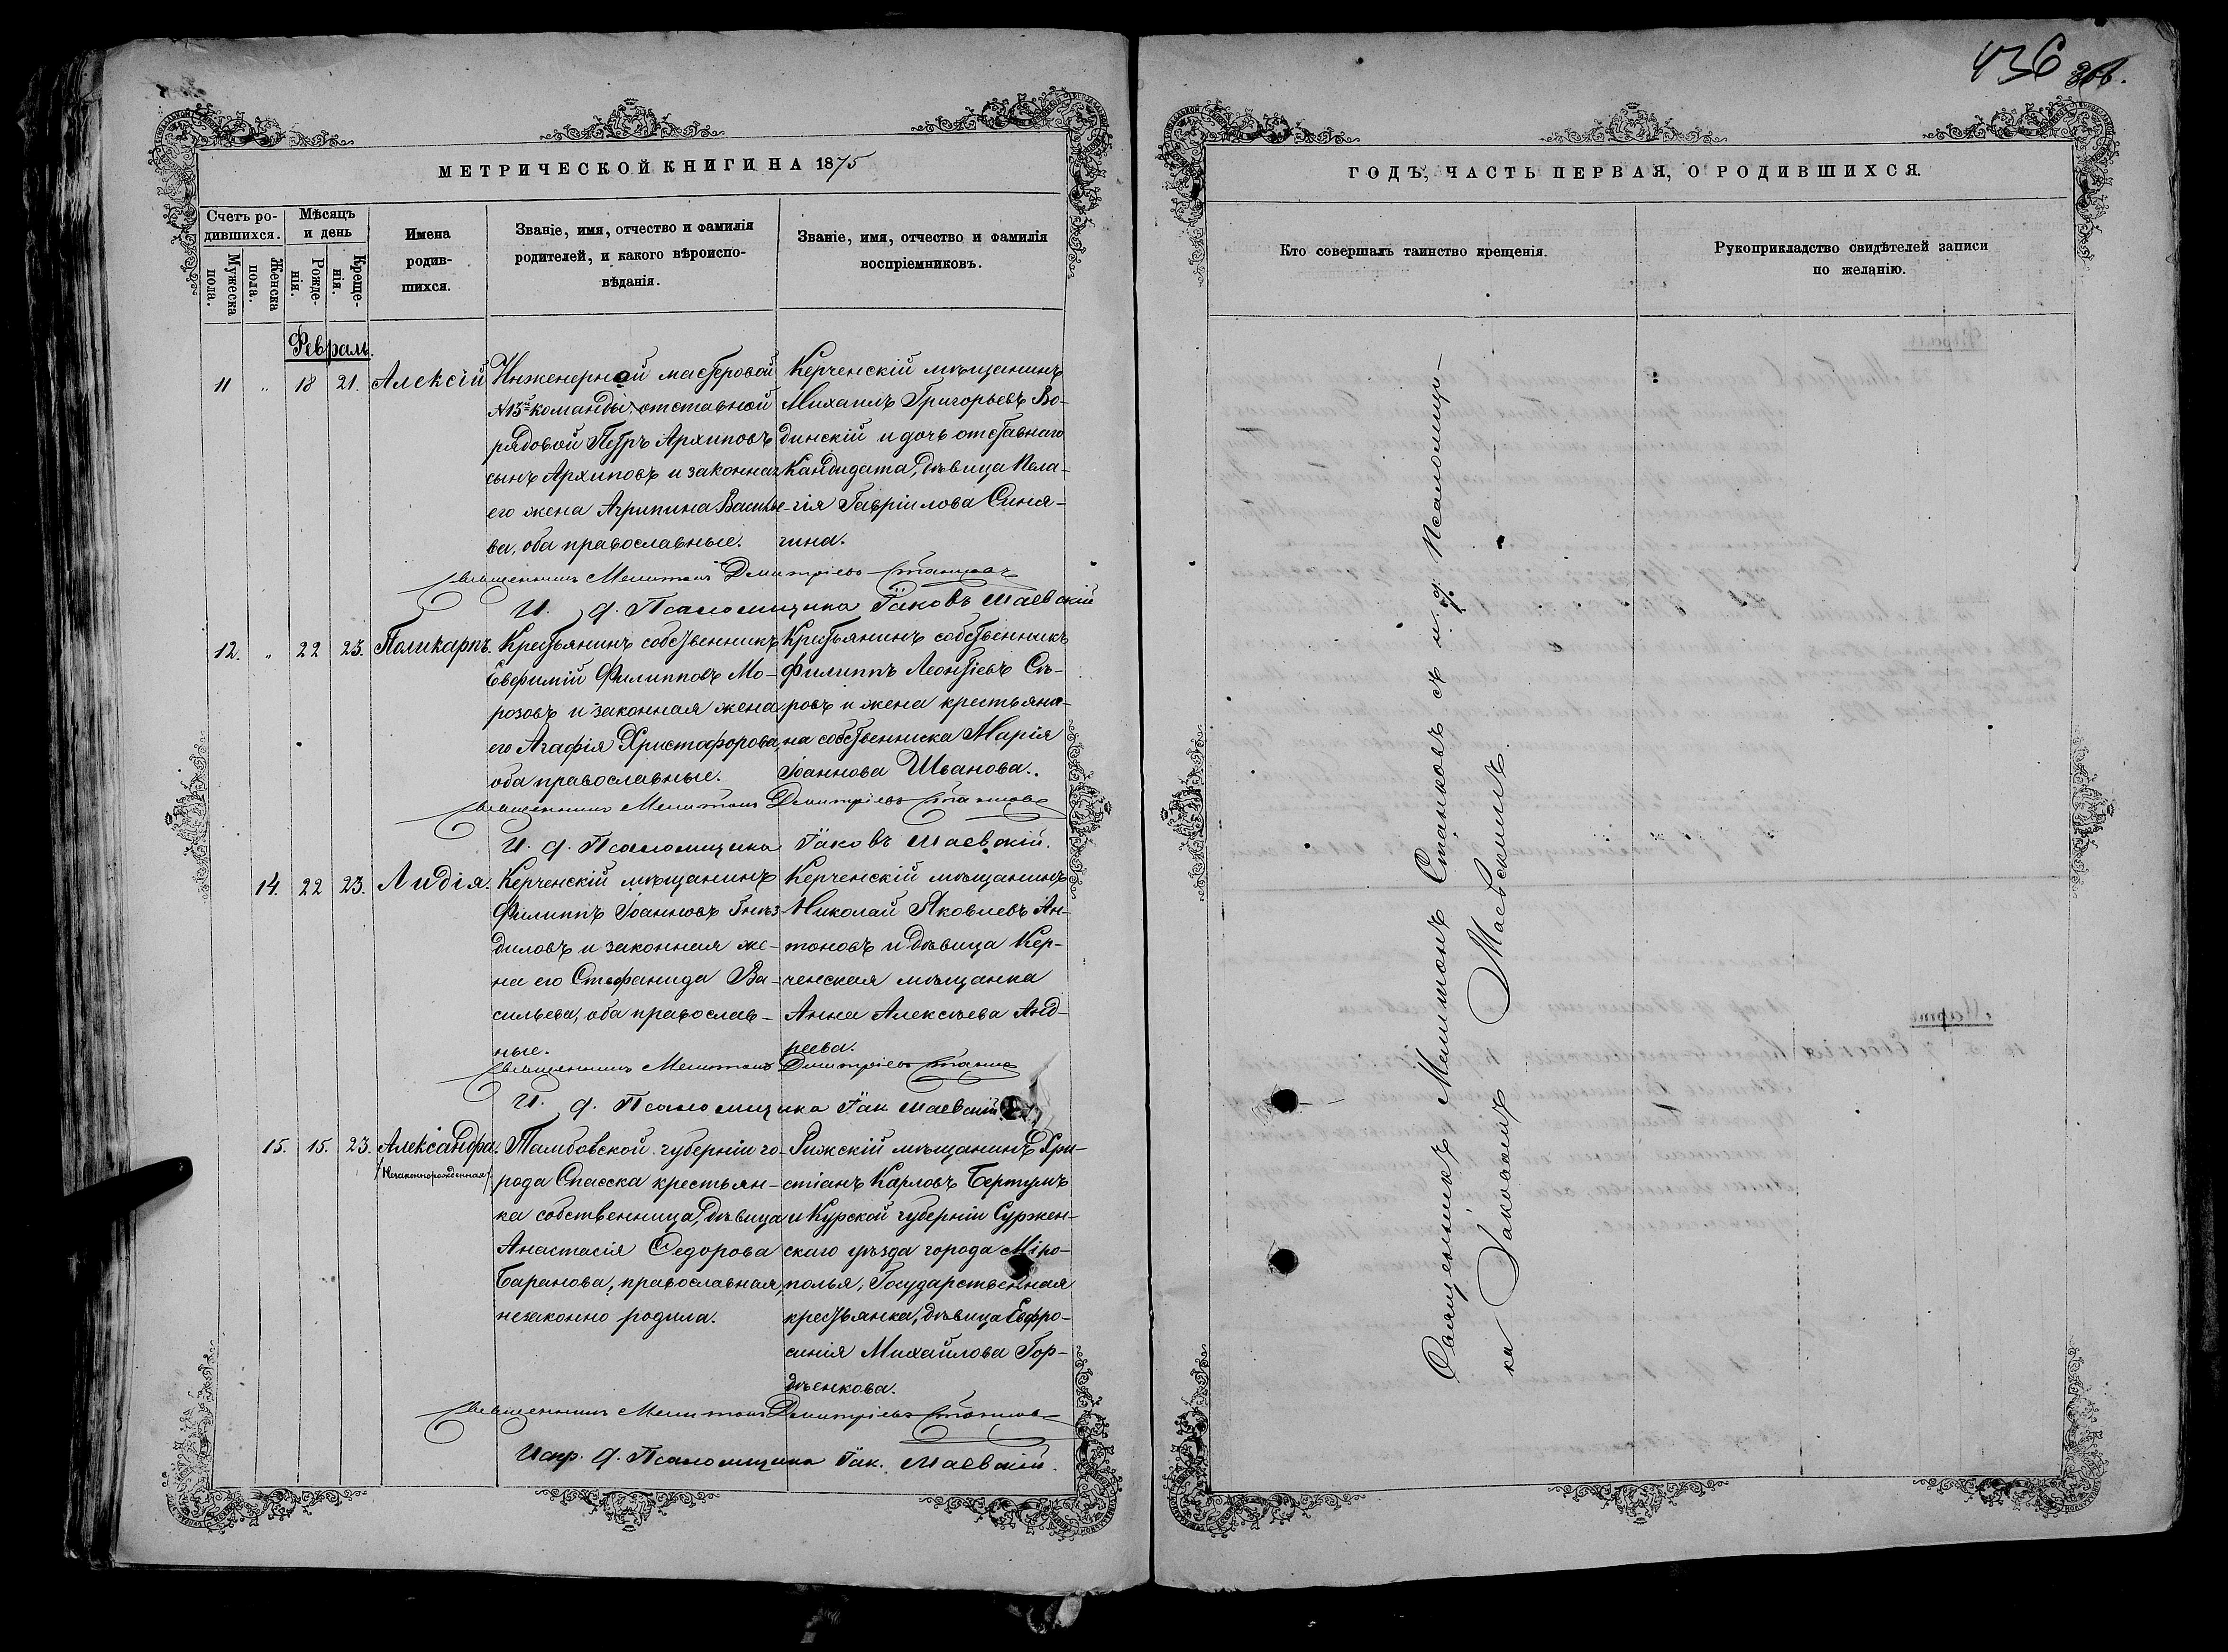 436
МЕТРИЧЕСКОЙ КНИГИ НА 1875
Счетъ ро-
дившихся.
Мужеска
пола.
Женска
пола.
Мѣсяцъ
и день
Рожде-
нія.
Креще-
нія.
Имена
родив-
шихся.
Званіе, имя, отчество и фамилія
родителей, и какого вѣроиспо-
вѣданія.
Званіе, имя, отчество и фамилія
воспріемниковъ.
Февраль.
11 " 18 21. Алексій
Инженерной мастеровой
№ 13й команды, отставной
рядовой Петръ Архиповъ
сынъ Архиповъ и законная
его жена Агрипина Василье-
ва, оба православные.
Керченскій мѣщанинъ
Михаилъ Григорьевъ Во-
динскій и дочь отставнаго
Кандидата, дѣвица Пела-
гія Гавріилова Синя-
гина.
Священникъ Мелитонъ Дмитріевъ Станковъ
И. д. Псаломщика Іаковъ Маевскій
12. " 22 23. Поликарпъ.
Крестьянинъ собственникъ
Евфимій Филипповъ Мо-
розовъ и законная жена
его Агафія Христафорова,
оба православные.
Крестьянинъ собственникъ
Филиппъ Леонтіевъ Сѣ-
ровъ и жена крестьяни-
на собственника Марія
Іоаннова Иванова.
Священникъ Мелитонъ Дмитріевъ Станковъ
И. д. Псаломщика Іаковъ Маевскій.
14. 22 23. Лидія.
Керченскій мѣщанинъ
Филиппъ Іоанновъ Гнѣз-
диловъ и законная же-
на его Стефанида Ва-
сильева, оба православ-
ные.
Керченскій мѣщанинъ
Николай Яковлевъ Ан-
тоновъ и дѣвица Кер-
ченская мѣщанка
Анна Алексѣева Анд-
реева.
Священникъ Мелитонъ Дмитріевъ Станко
И. д. Псаломщика Іак. Маевскій
15. 15. 23. Александра.
/Незаконнорожденная/
Тамбовской губерніи го-
рода Спасска крестьян-
ка собственница, дѣвица
Анастасія Ѳедорова
Баранова, православная,
незаконно родила.
Рижскій мѣщанинъ Хри-
стіанъ Карловъ Бертумъ
и Курской губерніи Суржен-
скаго уѣзда города Міро-
полья, Государственная
крестьянка, дѣвица Евфро-
синія Михайлова Гор-
дѣенкова.
Священникъ Мелитонъ Дмитріевъ Станковъ
Испр. д. Псаломщика Іак. Маевскій.
ГОДЪ, ЧАСТЬ ПЕРВАЯ, О РОДИВШИХСЯ.
Кто совершалъ таинство крещенія.
Рукоприкладство свидѣтелей записи
по желанію.
Священникъ Мелитонъ Станковъ съ и. д. Псаломщи-
ка Іаковомъ Маевскимъ.